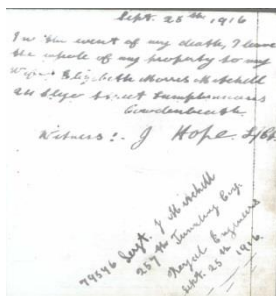 Sept. 25th, 1916
In the event of my death, I leave
the whole of my property to my
Wife Elizabeth Morris Mitchell
street
Cowdenbeath
Witness:- J Hope.
79546 Sergt. J Mitchell
257th Tunnling Coy.
Royal Engineers
Sept. 25th 1916.